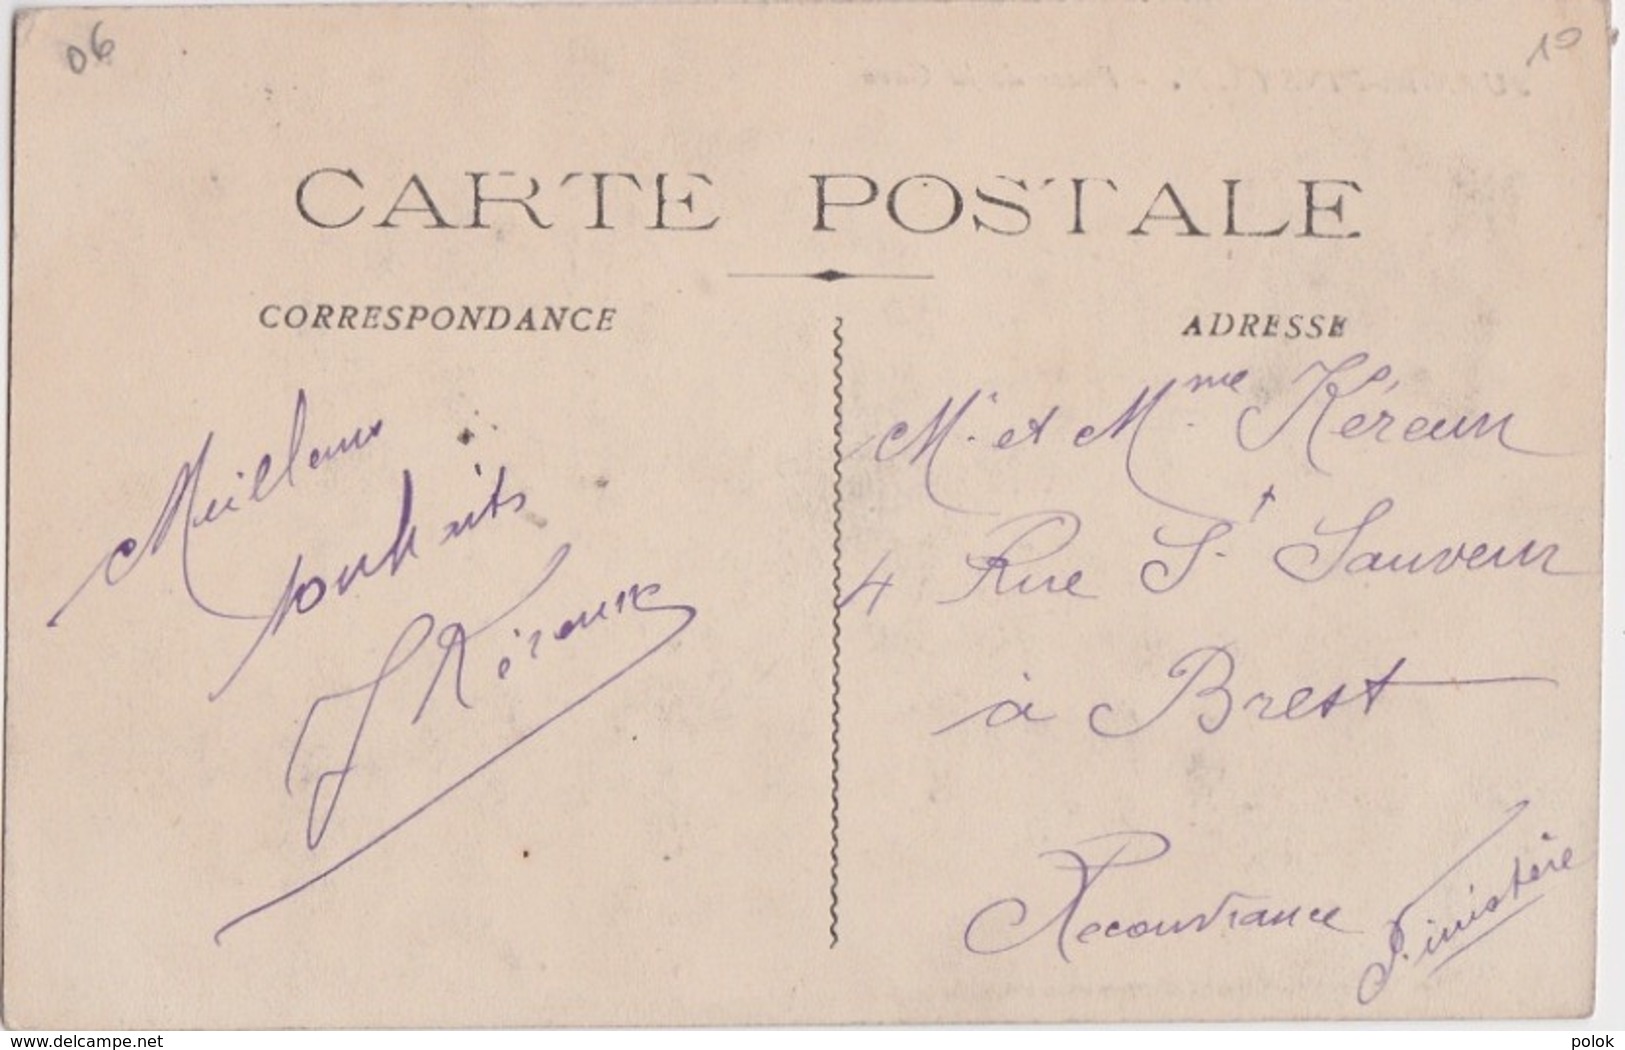 06
10
CARTE POSTALE
CORRESPONDANCE
ADRESSE
Meilleurs
souhaits
J Kéreun
Mr. et Mme. Kéreun
4 Rue St Sauveur
à Brest
Recouvrance
Finistère
www.delcampe.net
polok